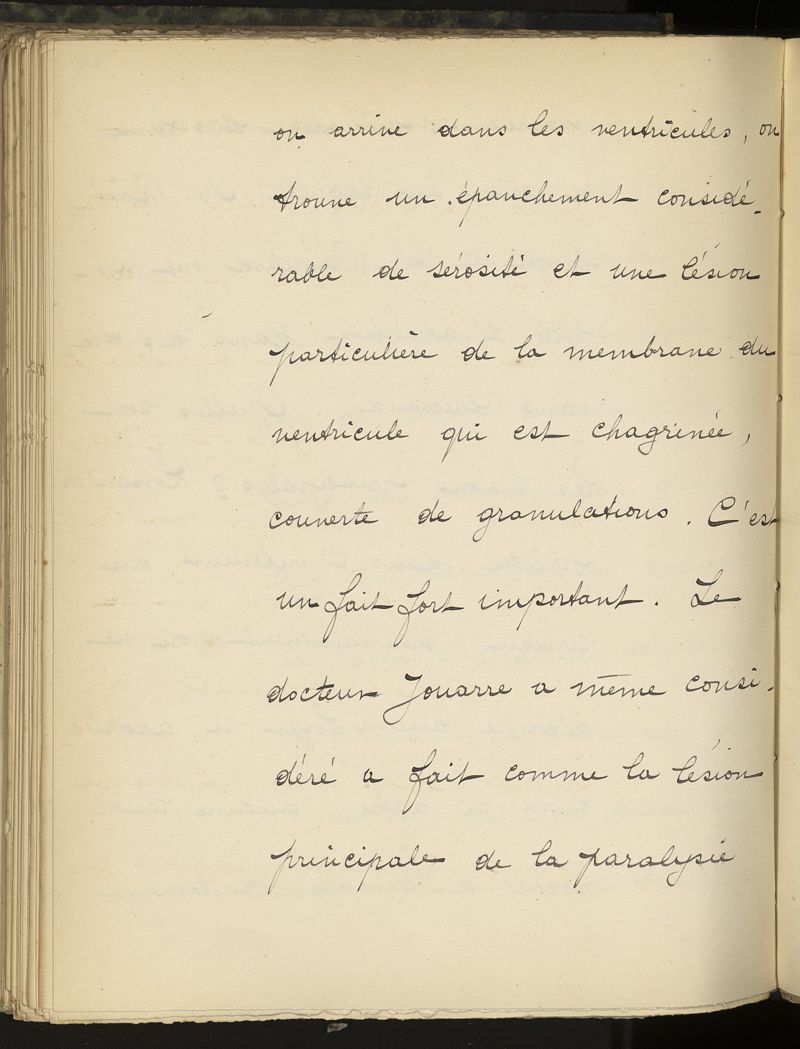 on arrive dans les ventricules, on
trouve un épanchement considé-
rable de sérosité et une lésion
particulière de la membrane du
ventricule qui est chagrinée,
couverte de granulations. C'est
un fait fort important. Le
docteur Jouarre a même consi-
déré a fait comme la lésion
principale de la paralysie